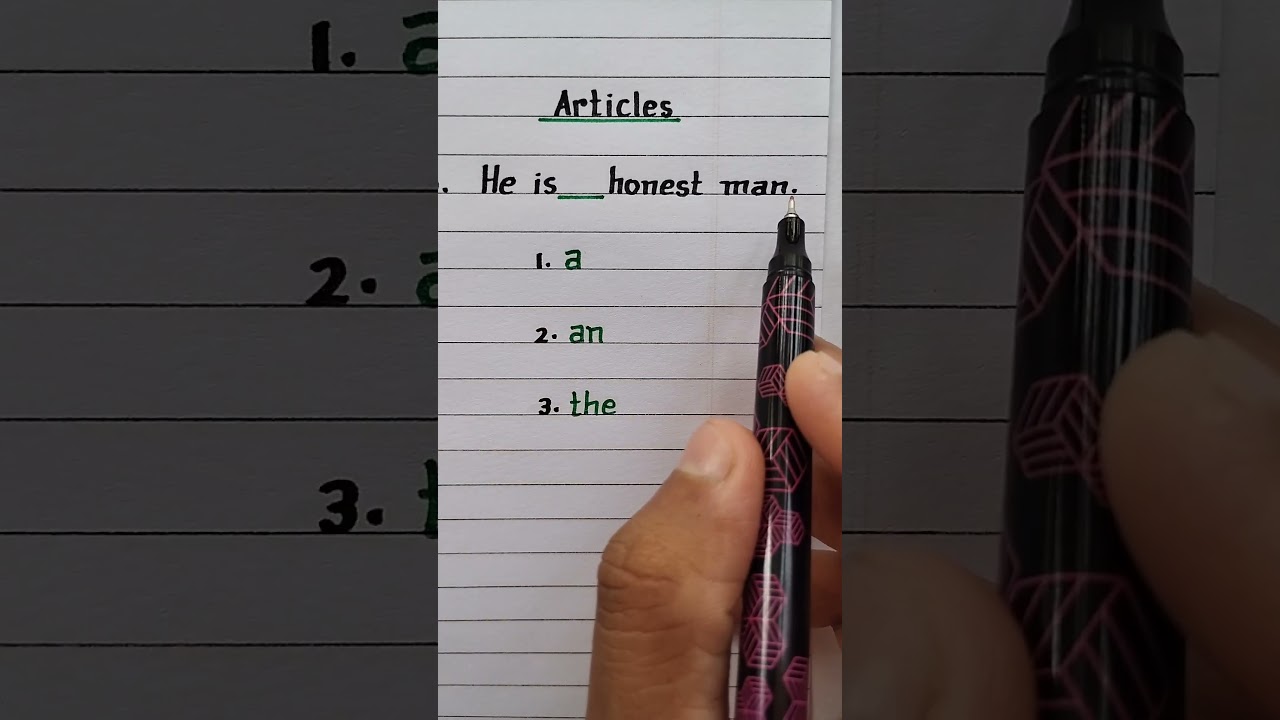 Articles
. He is __ honest man.
1. a
2. an
3. the